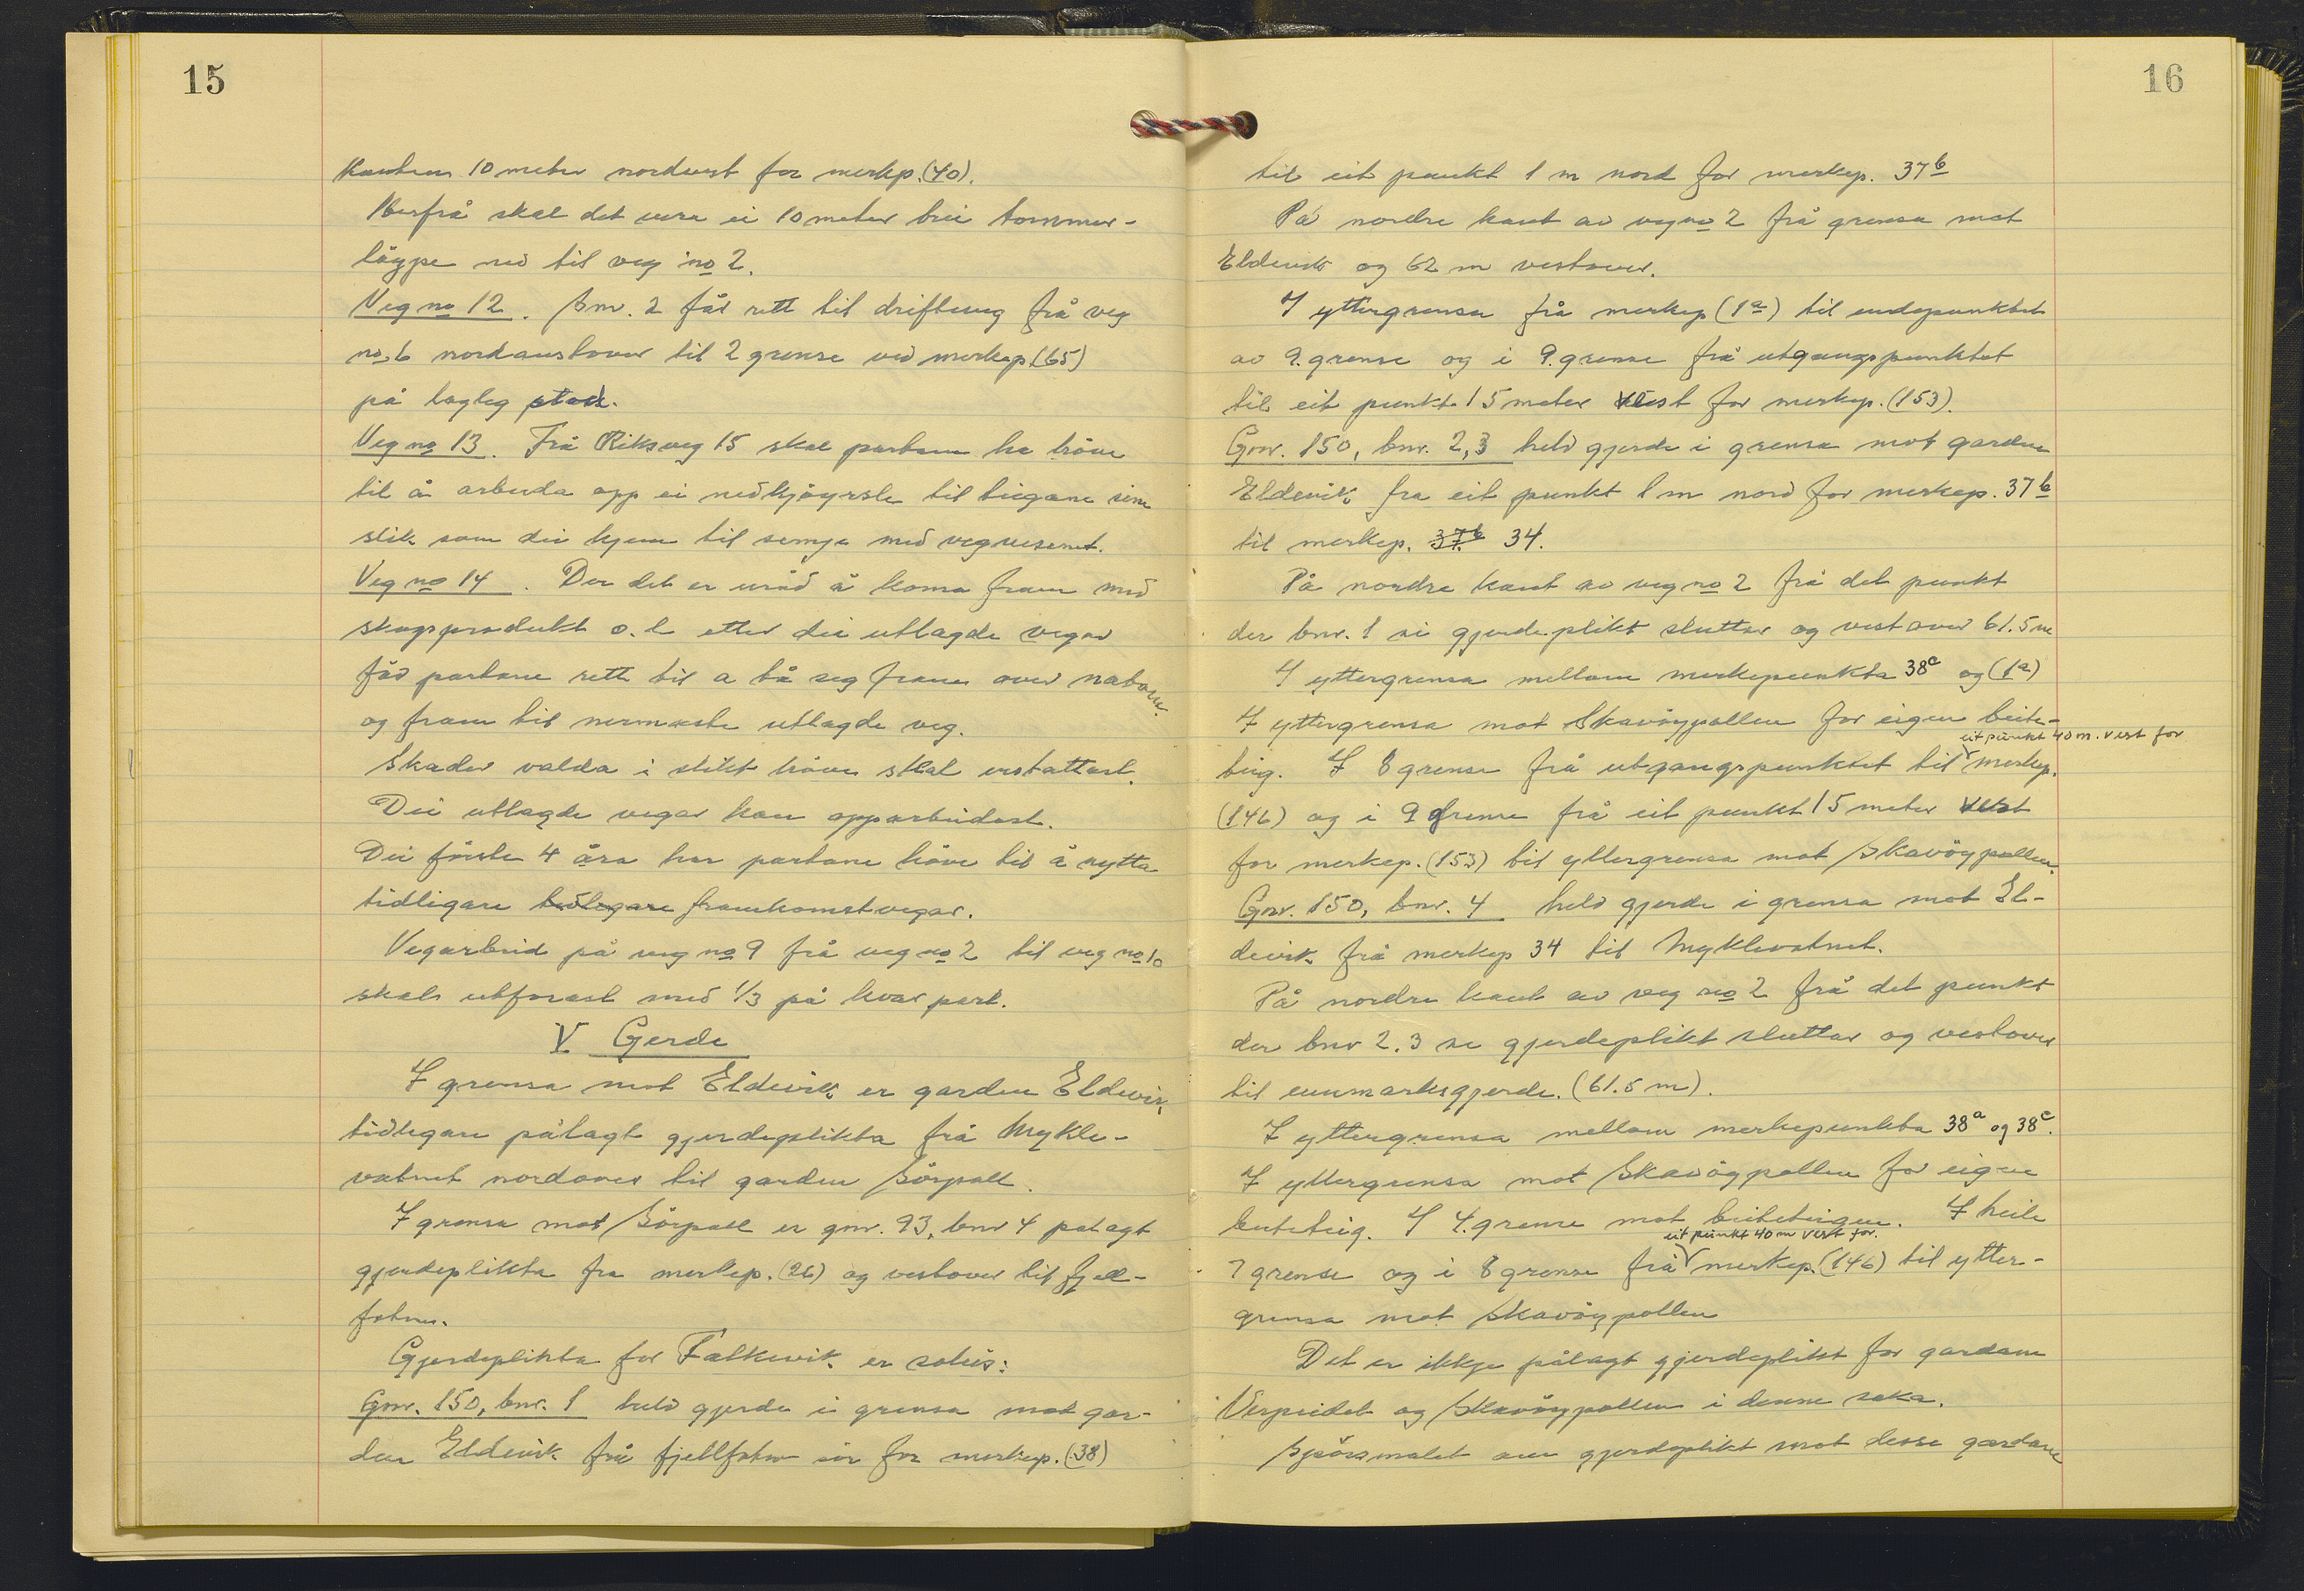 15
kanten 10 meter nordvest for merkp. (40).
Herfrå skal det vera ei 10 meter brei tømmer-
løype ned til veg no 2.
Veg no 12. Bnr. 2 får rett til driftsveg frå veg
no. 6 nordaustover til 2 grense ved merkep. (65)
på lagleg stad.
Veg no 13. Frå Riksveg 15 skal partane ha høve
til å arbeida opp ei nedkjøyrsle til teigane sine
slik som dei kjem til semje med vegvesenet.
Veg no 14. Der det er uråd å koma fram med
skogsprodukt o.l. etter dei utlagde vegar
får partane rett til a tå seg fram over naboen
og fram til nermaste utlagde veg.
Skader valda i slikt høve skal erstattast.
Dei utlagde vegar kan opparbeidast.
Dei første 4 åra har partane høve til å nytta
tidligare tidlegare framkomstvegar.
Vegarbeid på veg no 9 frå veg no 2 til veg no 10
skal utførast med 1/3 på kvar part.
V Gerde
I grensa mot Eldevik er garden Eldevik
tidlegare pålagt gjerdeplikta frå Mykle-
vatnet nordover til garden Sørpoll.
I grensa mot Sørpoll er gnr. 93, bnr 4 palagt
gjerdeplikta fra merkep. (26) og vestover til fjell-
foten.
Gjerdeplikta for Falkevik er soleis:
Gnr. 150, bnr. 1 held gjerde i grensa mot gar-
den Eldevik frå fjellfoten sør for merkep. (38)
16
til eit punkt 1 m nord for merkep. 37b
På nordre kant av veg no 2 frå grensa mot
Eldevik og 62 m vestover.
I yttergrensa frå merkep (1a) til endepunktet
av 9. grense og i 9. grense frå utgangspunktet
til eit punkt 15 meter vest for merkep. (153).
Gnr. 150, bnr. 2,3 held gjerde i grensa mot garden
Eldevik fra eit punkt 1 m nord for merkep. 37b
til merkep. 37b 34.
På nordre kant av veg no 2 frå det punkt
der bnr. 1 si gjerdeplikt sluttar og vestover 61.5 m
I yttergrensa mellom merkepunkta 38c og (1a)
I yttergrensa mot Skavøypollen for eigen beite-
eit punkt 40 m. vest for
teig. I 8 grense frå utgangspunktet til merkep.
(146) og i 9 grense frå eit punkt 15 meter vest
for merkep. (153) til yttergrensa mot Skavøypollen.
Gnr. 150, bnr. 4 held gjerde i grensa mot El-
devik frå merkep 34 til Myklevatnet.
På nordre kant av veg no 2 frå det punkt
der bnr 2.3 si gjerdeplikt sluttar og vestover
til innmarksgjerde. (61.5 m).
I yttergrensa mellom merkepunkta 38a og 38c.
I yttergrensa mot Skavøypollen for eigen
beiteteig. I 4. grense mot beiteteigen. I heile
eit punkt 40 m vest for.
7 grense og i 8 grense frå merkep. (146) til ytter-
grensa mot Skavøypollen
Det er ikkje pålagt gjerdeplikt for gardane
Verpeidet og Skavøypollen i denne saka.
Spørsmalet om gjerdeplikt mot desse gardane